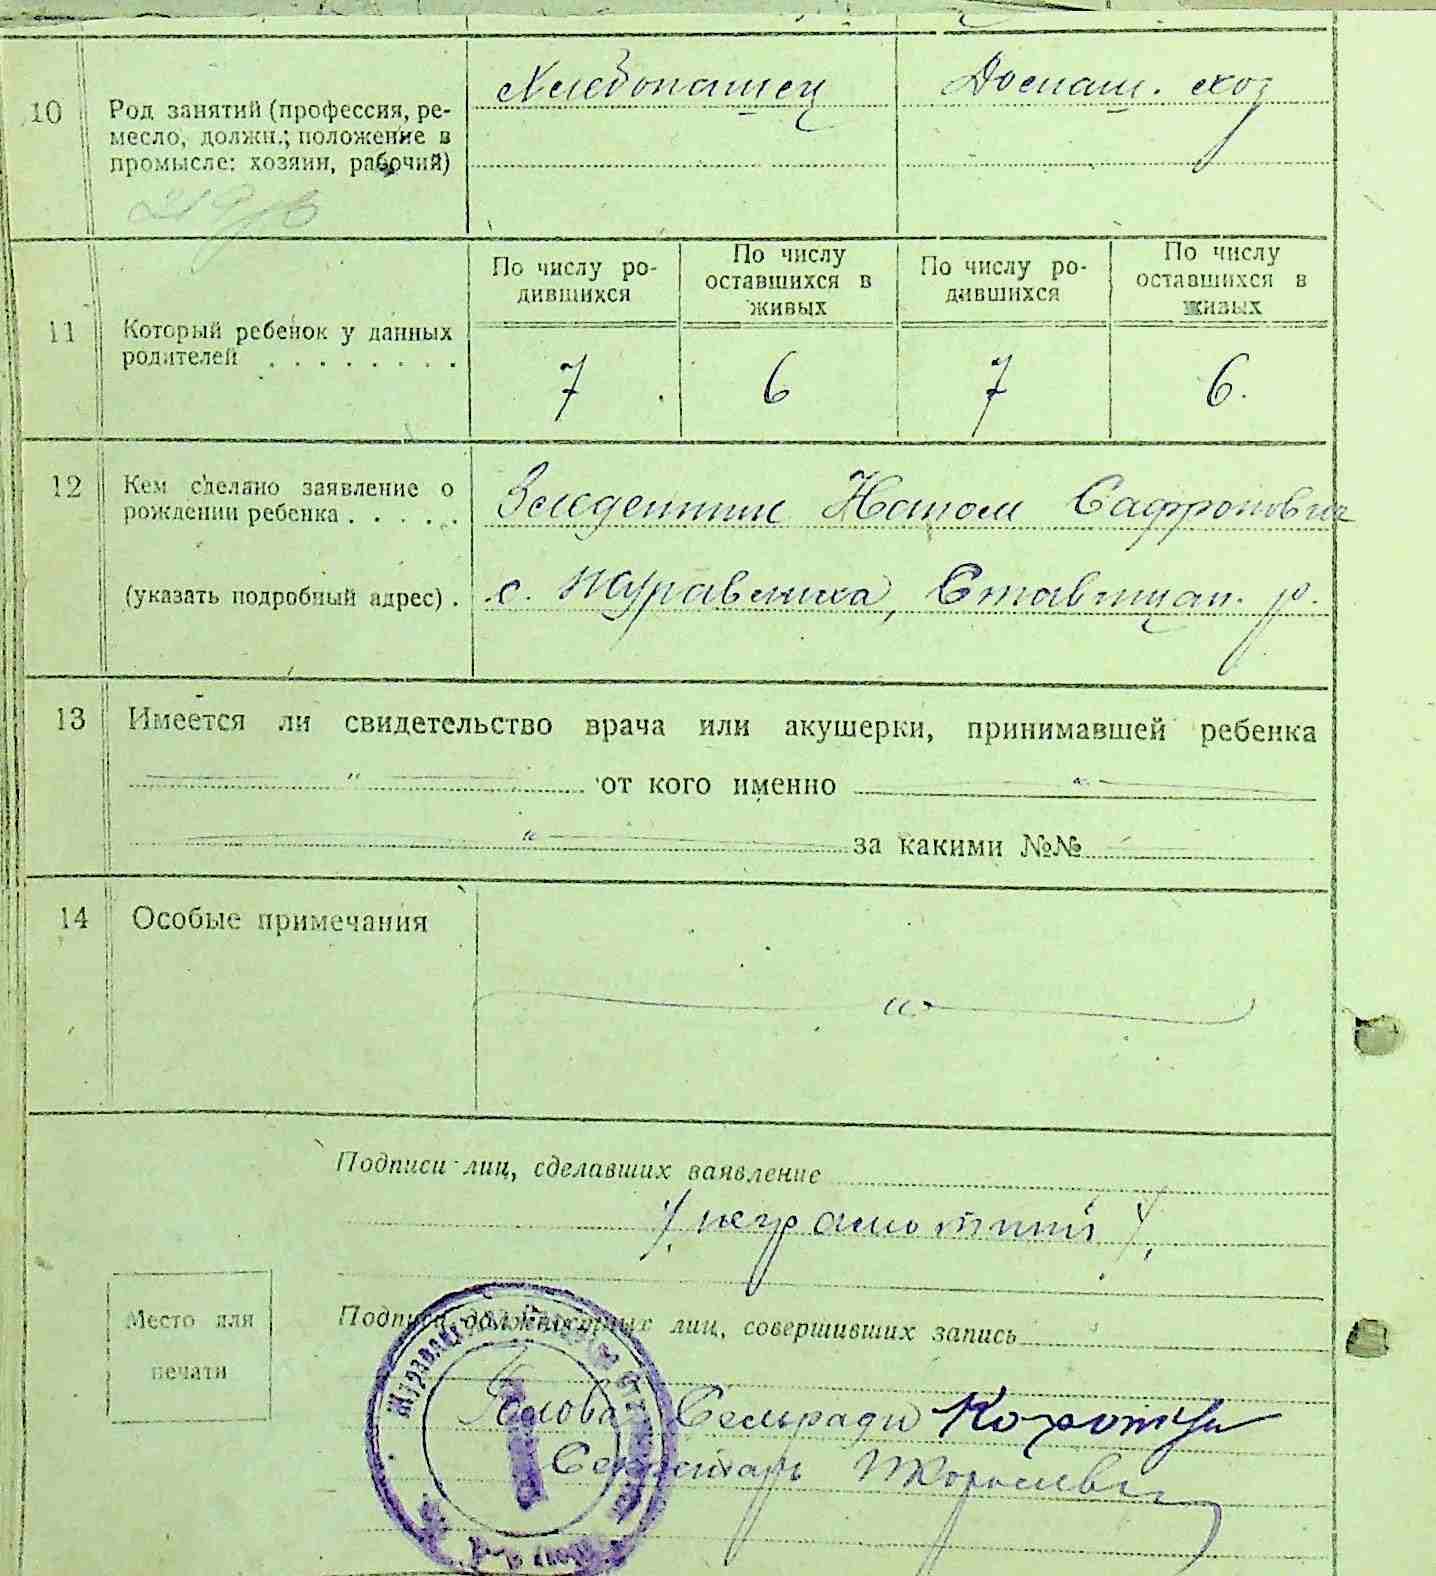 10 Род занятий (профессия, ре-
месло, должн.; положение в
промысле: хозяин, рабочий)
Хлебопашец
Домаш. хоз
11 Который ребенок у данных
родителей . . . . . . . .
По числу ро-
дившихся
По числу
оставшихся в
живых
По числу ро-
дившихся
По числу
оставшихся в
живых
7 6 7 6.
12 Кем сделано заявление о
рождении ребенка . . . . .
Сафронович
(указать подробный адрес) .
с. Журавлиха, Ставищан. р.
13 Имеется ли свидетельство врача или акушерки, принимавшей ребенка
" от кого именно "
" за какими №№
14 Особые примечания
"
Подписи лиц, сделавших заявление
/неграмотний/.
Место для
печати
Подписи должностных лиц, совершивших запись
Голова Сельради
Секретарь